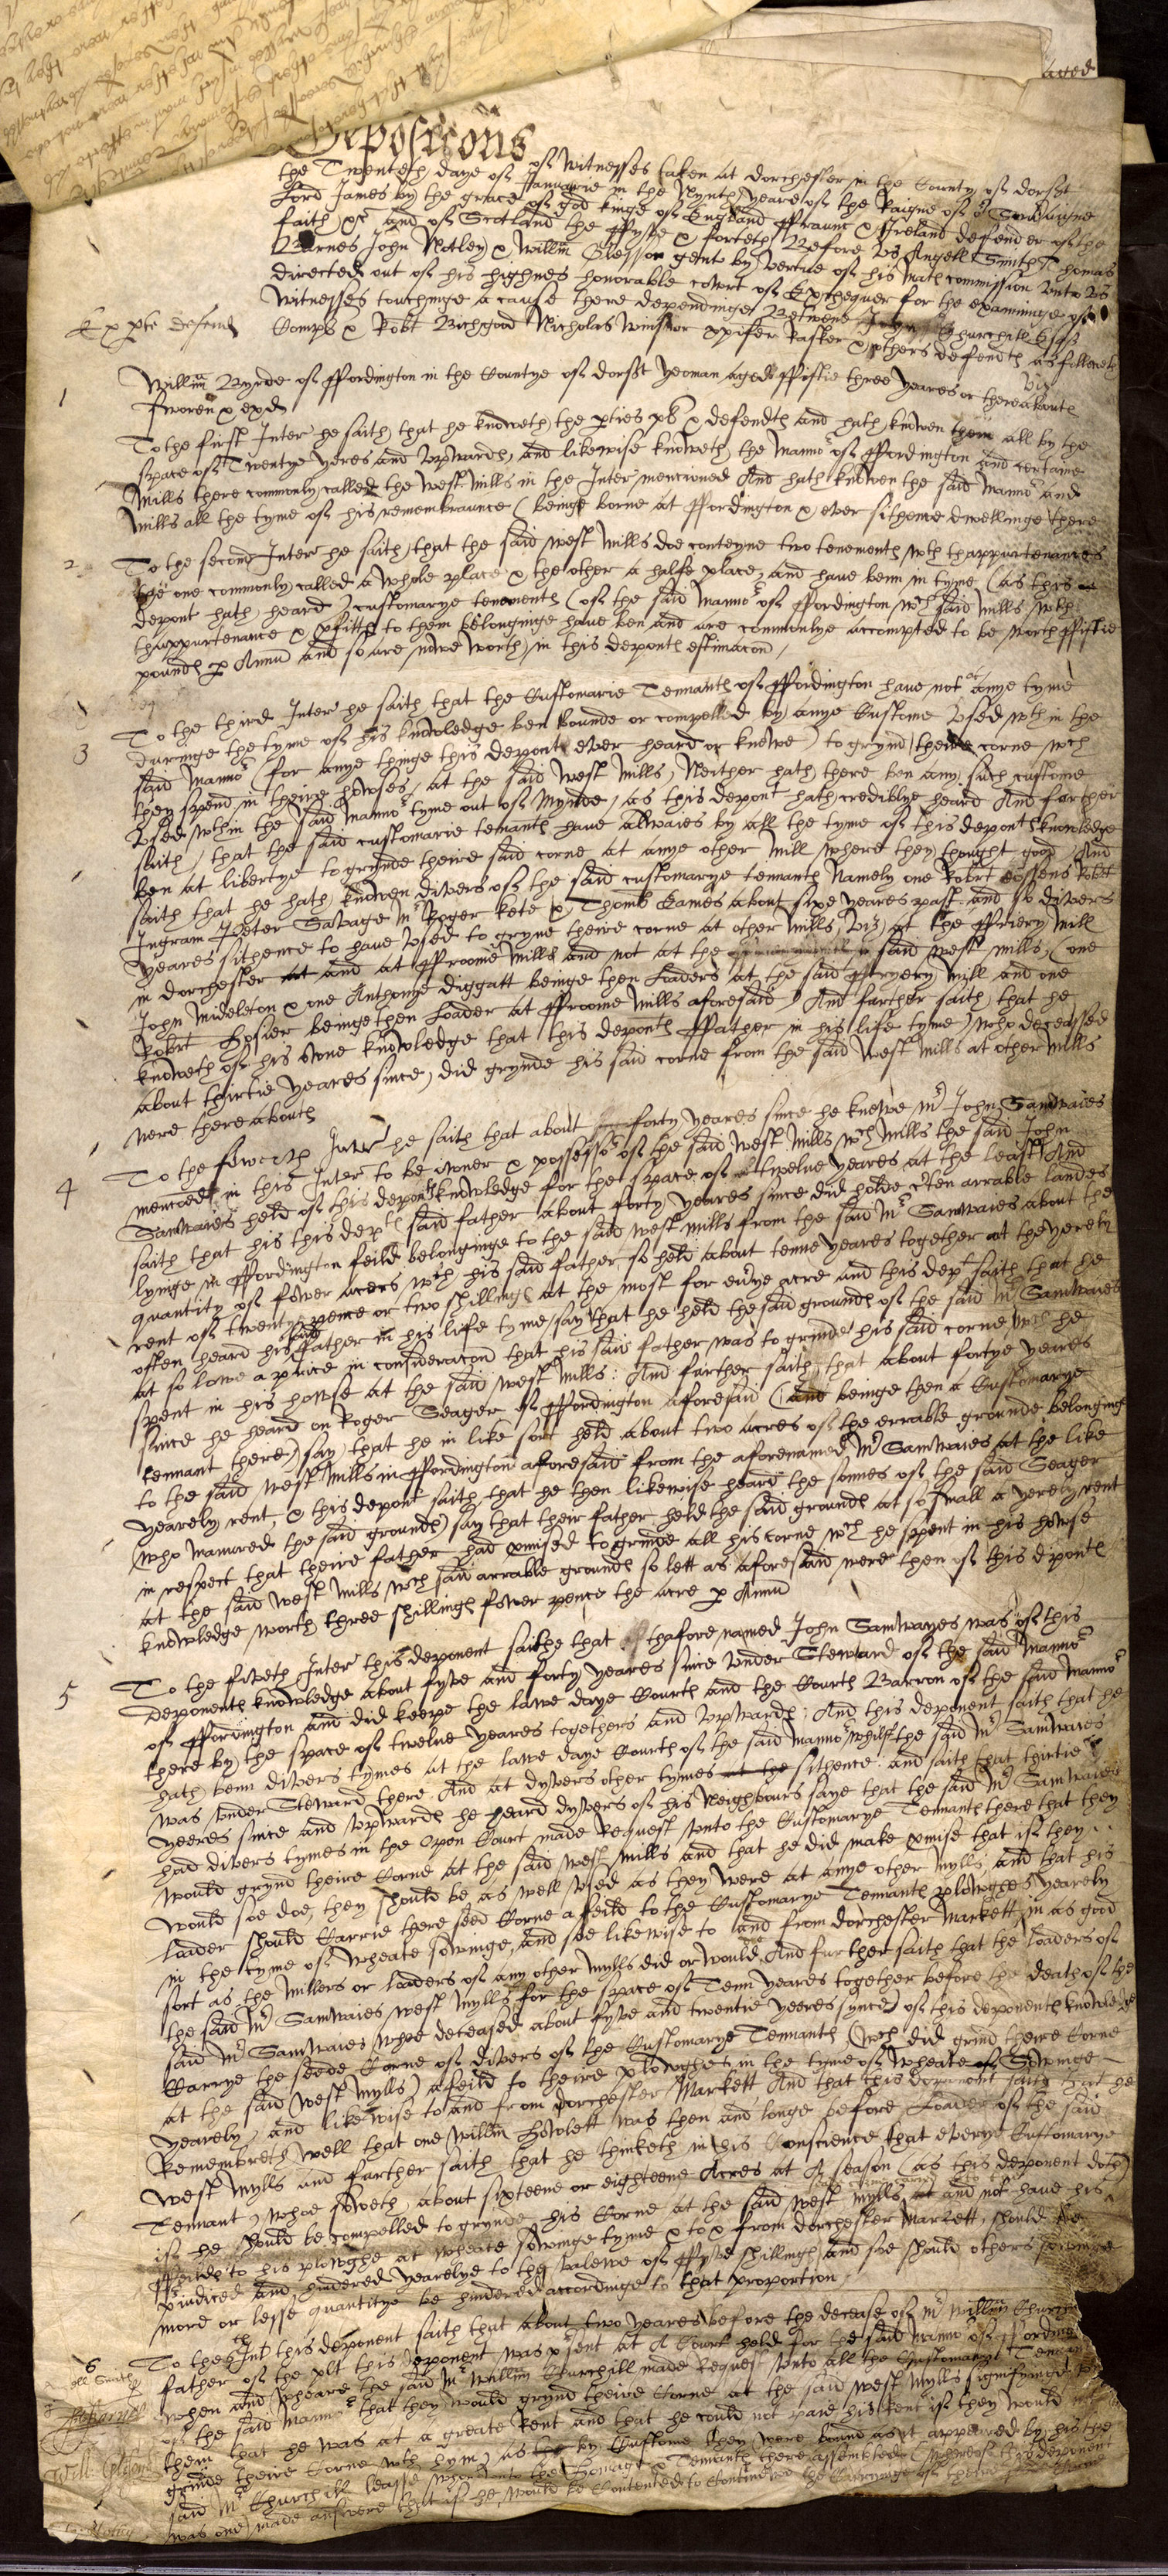 aged
Deposicōns
of witnesses taken at dorchester in the County of dorst
the Twenteth daye of Januarie in the Nynth yeare of the Raigne of oʳ Soveraigne
Lord James by the grace of god kinge of England ffraunc & Ireland defender of the
faith &c And of Scotland the ffyve & forteth Before us Angell Smith Thomas
Barnes John Notley & Willm̄ Glesson gent by vertue of his Maᵗˢ commission unto us
directed out of his highnes honorable court of Exchequer for the examininge of
witnesses touchinge a cause there dependinge Betwene John Churchill Esqʳ
Complᵗ & Robt Bichgood Nicholas Winsor xpifer Rasker & others defendᵗˢ as followeth
Ex pte defend
viz
1 Willm̄ Byrde of ffordington in the Countye of dorst yeoman aged ffiftie three yeares or thereaboutes
sworen & exd
To the first Inter he saith that he knoweth the pties plt & defendᵗˢ and hath knowen them all by the
space of Twentye yeres and upwardes, and likewise knoweth the Mannoʳ of ffordington and certaine
Mills there commonly called the west Mills in the Inter mencioned And hath knowen the said Mannoʳ and
Mills all the tyme of his remembraunce (beinge borne at ffordington & ever sithence dwellinge there
2 To the second Inter he saith, that the said west Mills doe conteyne two tenementes wᵗʰ thappurtenances
the one commonly called a whole place & the other a halfe place, and have benn in tyme (as this
depont hath heard) customarye tenementes (of the said Mannoʳ of ffordington wᶜʰ said Mills wᵗʰ
thappurtenance & pfittes to them belonginge have ben and are commonlye accompted to be worth ffiftie
poundes p Annū and so are nowe worth in this deponᵗˢ estimacōn,
3 To the third Inter he saith that the Customarie Tennantes of ffordington have not at anye tyme
duringe the tyme of his knowledge ben bounde or compelled by anye Custome used wᵗʰin the
said Mannoʳ (for anye thinge this depont ever heard or knowe) to grynd theire corne wᶜʰ
they spend in theire howses, at the said west Mills, Neither hath there ben any such custome
used wᵗʰin the said Mannoʳ tyme out of Mynde, as this depont hath crediblye heard And further
saith, that the said customarie tenantes have allwaies by all the tyme of this deponᵗˢ knowledge
ben at libertye to grynde theire said corne at anye other Mill where they thought good, And
saith that he hath knowen divers of the said customarye tennantes Namely one Robrt Cossens Robrt
Ingram Peter Savage Mʳ Roger Kete & Thoms Eames about sixe yeares past and so divers
yeares sithence to have used to gryne theire corne at other Mills, viz at the ffriery Mill
in dorchester at and at ffroome Mills and not at the said west Mills, (one
John Midelton & one Anthonye diggatt beinge then Loaders at the said ffryery Mill and one
Robrt Hosier beinge then Loader at ffroome Mills aforesaid) And further saith, that he
knoweth of his owne knowledge that this deponᵗˢ ffather in his life tyme) who deceassed
about thirtie yeares since) did grynde his said corne from the said west Mills at other Mills
nere there aboutes
4 To the fowerth Inter he saith that about forty yeares since he knewe Mʳ John Samwaies
mencōed in this Inter to be owner & possessoʳ of the said west Mills wᶜʰ Mills the said John
Samwaies held of this deponᵗˢ knowledge for the space of twelve yeares at the least And
saith that his this depᵗˢ said father about forty yeares since did holde ten arrable landes
lyinge in ffordington feild belonginge to the said west mills from the said Mʳ Samwaies about the
quantity of fower acers wᶜʰ his said father so held about tenne yeares together at the yerely
rent of twenty pence or two shillinges at the most for everye acre and this dept saith that he
often heard his said father in his life tyme say that he held the said groundes of the said Mʳ Samwaies
at so lowe a price in consideracōn that his said father was to grinde his said corne, wᶜʰ he
spent in his howse at the said west Mills: And further saith, that about fortye yeares
since he heard on Roger Seager of ffordington aforesaid (and beinge then a Customarye
tennant there) say, that he in like sort held about two acres of the errable grounde belonginge
to the said west Mills in ffordington aforesaid from the aforenamed Mʳ Samwaies at the like
yearely rent, & this depont saith that he then likewise heard the sonnes of the said Seager
(who manured the said groundes) say that their father held the said groundes at so small a yerely rent
in respect that theire father had pmised to grinde all his corne wᶜʰ he spent in his howse
at the said west Mills wᶜʰ said arrable groundes so lett as aforesaid were then of this diponᵗˢ
knowledge worth three shillinges fower pence the acre p Annū
5 To the fiveth Inter this deponent saithe that thafore named John Samwayes was of this
deponentes knowledge about fyve and forty yeares since under Steward of the said Mannoʳ
of ffordington and did keepe the lawe daye Courtes and the Courtes Barron of the said Mannoʳ
there by the space of twelve yeares togethers and upwardes: And this deponent saith that he
hath benn divers tymes at the lawe daye Courtes of the said Mannoʳ whilst the said Mʳ Samwaies
was under Steward there And at dyvers other tymes at the sithence: and saith that thirtie
yeeres since and upwardes he heard dyvers of his Neighbours saye that the said Mʳ Samwaies
had divers tymes in the open Court made Request unto the Customarye Tennantes there that they
would grynd theire Corne at the said west mills and that he did make pmise that if they
would soe doe, they should be as well used as they were at anye other Mylls, and that his
loader should Carrie there seed Corne a feild to the Customarye Tennantes plowghes yearely
in the tyme of wheate sowinge, and soe likewise to and from dorchester Markett, in as good
sort as the Millers or loaders of any other Mylls did or would. And further saith that the loaders of
the said Mʳ Samwaies west Mylls for the space of Tenn yeares together before the death of the
said Mʳ Samwaies (whoe deceased about fyve and twentie yeeres synce) of this deponentes knowledge
Carrye the seede Corne of divers of the Customarye Tennantes (wᶜʰ did grind theire Corne
at the said west Mylls) a feild to theire plowghes in the tyme of wheate of Sowinge
yearely, and likewise to and from dorchester Markett And that this deponent saith that he
Remembreth well that one Willm̄ Howlett was then and longe before Loader of the said
west Mylls and further saith that he thinketh in his Conscience that everye Customarye
Tennant, whoe soweth about sixteene or eighteene Acres at A season (as this deponent doth)
if he should be compelled to grynde his Corne at the said west Mylls and not have his
ffeild to his plowghe at wheate sowinge tyme & to & from dorchester Markett, should be
piudiced and hindered yearelye to the valewe of ffyve shillinges, and soe should others sowinge
more or lesse quantitye be hindered accordinge to that proportion,
6 To the 6ᵗʰ Int this deponent saith that about two yeares before the decease of Mʳ Willm̄ Church
father of the plt this deponent was psent at A Court held for the said Mannoʳ of ffording
when and wheare the said Mʳ Willm̄ Churchill made Request unto all the Customarye Tennan
of the said Mannoʳ that they would grynd theire Corne at the said west Mylls signifyinge
them that he was at a greate Rent and that he could not paie his Rent if they would
grinde theire Corne with hym, as by Custome they were bound as yt appeared by his the
said Mʳ Churchill lease, whereunto the homage & Tennantes there assembled (whereof this deponent
was one) made answere that if he would be Contented to Continue